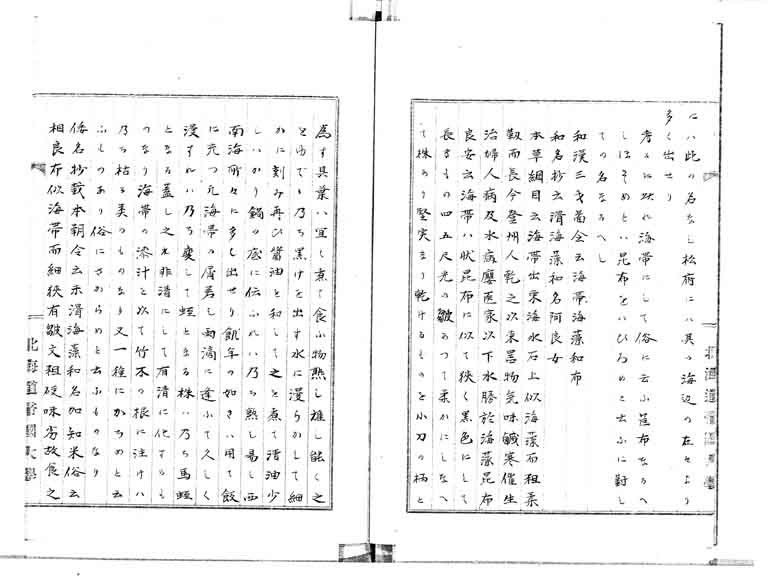 にハ此の名なし松府にハ其の海辺の在々より
多く出せり
考るに此れ海帯にして俗に云ふ荒布ならへ
しほそめといハ昆布をハひろめと云ふに対し
ての名なるへし
和漢三才圖会云海帯海藻和布
和名抄云滑海藻和名阿良女
本草綱目云海帯出東海水石上似海藻而粗柔
靱而長今登州人乾之以束器物気味鹹寒催生
治婦人病及水病廮医家以下水勝於海藻昆布
良安云海帯ハ状昆布に似て狭く黒色にして
長きもの四五尺光の皺あつて柔かにしなへ
て株あり堅実なり乾けるものを小刀の柄と
為す其葉ハ宜し煮て食ふ物熟し難し能く之
をゆでゝ乃ち黒汁を出す水に漫らかして細
かに刻み再ひ醤油と和して之を煮て清油少
しいかり鍋の底に伝ふれハ乃ち熟し易し西
南海所々に多し出せり飢年の如きハ用て飯
に充つ凡海帯の屑若し雨滴に逢ふて久しく
漫すれハ乃ち変して蛭となる株ハ乃ち馬蛭
となる蓋し之れ非清にして有清に化するも
のなり海帯の漆汁を以て竹木の根に注けハ
乃ち枯る美のものなり又一種にかちめと云
ふものあり俗にさからめと云ふものなり
倭名抄載本朝令云末滑海藻和名加知米俗云
相良布似海帯而細狭有皺文粗硬味劣故食之
北海道帝國大學
北海道帝國大學